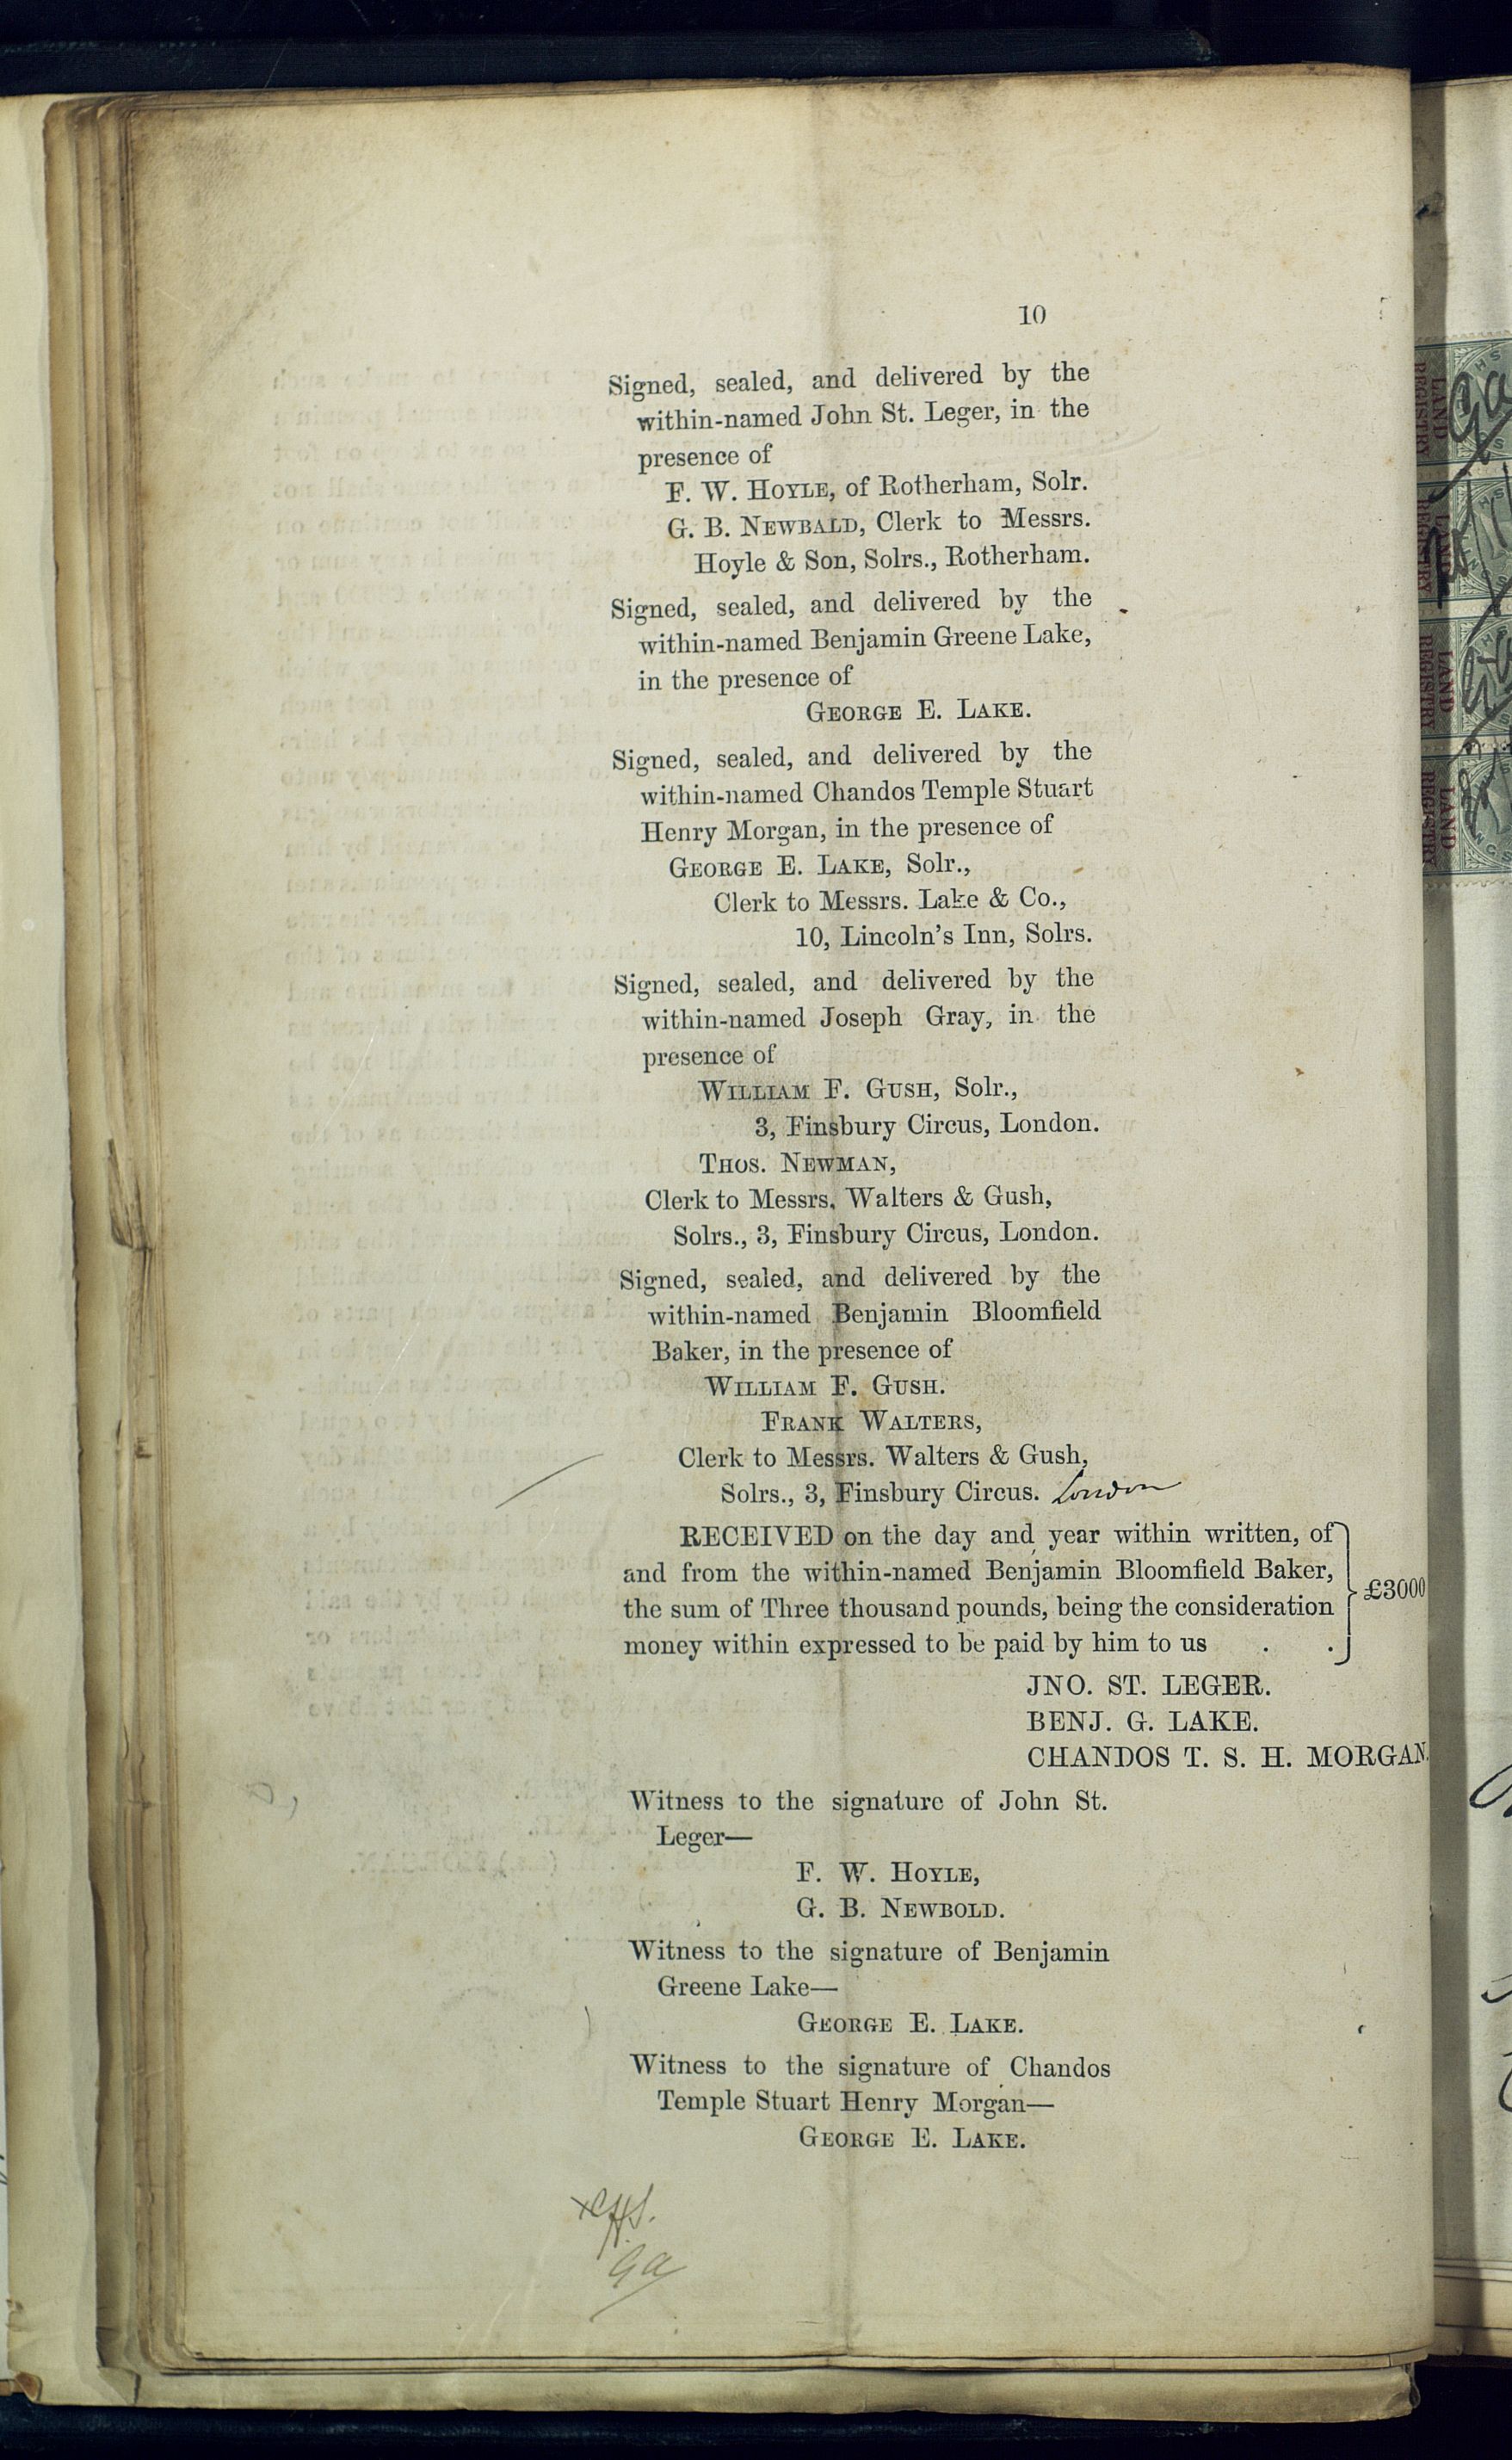 10
Signed, sealed, and delivered by the
within-named John St. Leger, in the
presence of
F. W. HOYLE, of Rotherham, Solr.
G. B. NEWBALD, Clerk to Messrs.
Hoyle & Son, Solrs., Rotherham.
Signed, sealed, and delivered by the
within-named Benjamin Greene Lake,
in the presence of
GEORGE E. LAKE.
Signed, sealed, and delivered by the
within-named Chandos Temple Stuart
Henry Morgan, in the presence of
GEORGE E. LAKE, Solr.,
Clerk to Messrs. Lake & Co.,
10, Lincoln's Inn, Solrs.
Signed, sealed, and delivered by the
within-named Joseph Gray, in the
presence of
WILLIAM F. GUSH, Solr.,
3, Finsbury Circus, London.
THOS. NEWMAN,
Clerk to Messrs. Walters & Gush,
Solrs., 3, Finsbury Circus, London.
Signed, sealed, and delivered by the
within-named Benjamin Bloomfield
Baker, in the presence of
WILLIAM F. GUSH.
FRANK WALTERS,
Clerk to Messrs. Walters & Gush,
Solrs., 3, Finsbury Circus. London
RECEIVED on the day and year within written, of
and from the within-named Benjamin Bloomfield Baker,
the sum of Three thousand pounds, being the consideration
money within expressed to be paid by him to us . .
£3000
JNO. ST. LEGER.
BENJ. G. LAKE.
CHANDOS T. S. H. MORGAN.
Witness to the signature of John St.
Leger—
F. W. HOYLE,
G. B. NEWBOLD.
Witness to the signature of Benjamin
Greene Lake—
GEORGE E. LAKE.
Witness to the signature of Chandos
Temple Stuart Henry Morgan—
GEORGE E. LAKE.
LAND
REGISTRY
LAND
REGISTRY
LAND
REGISTRY
LAND
REGISTRY